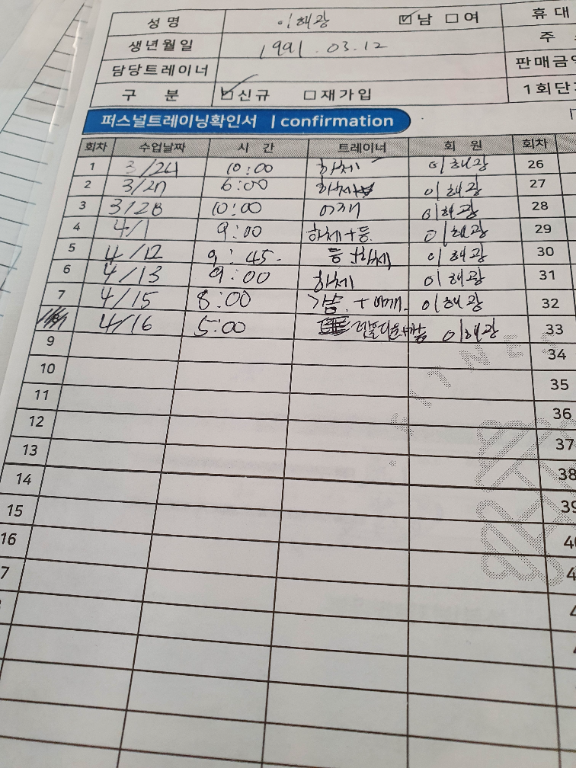 성 명 이해광 ☑남 □여 휴대
생년월일 1991.03.12 주
담당트레이너 판매금
구 분 ☑신규 □재가입 1회단
퍼스널트레이닝확인서 | confirmation
회차 수업날짜 시 간 트레이너 회 원 회차
1 3/24 10:00 하체 이해광 26
2 3/27 6:00 이해광 27
3 3/28 10:00 어깨 이해광 28
4 4/1 9:00 하체+등 이해광 29
5 4/12 9:45 등+하체 이해광 30
6 4/13 9:00 하체 이해광 31
7 4/15 8:00 가슴+어깨 이해광 32
4/16 5:00 이해광 33
9 34
10 35
11 36
12 37
13 38
14 39
15
16